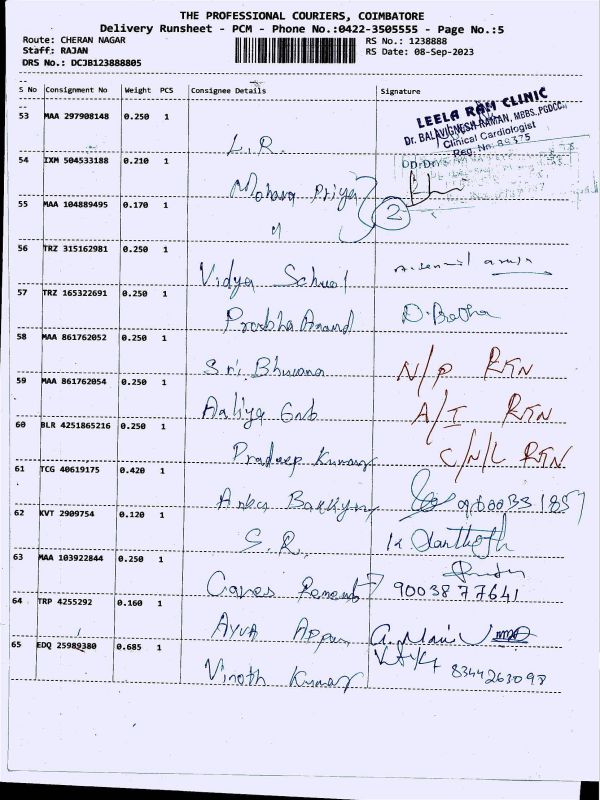 THE PROFESSIONAL COURIERS, COIMBATORE
Delivery Runsheet - PCM - Phone No.:0422-3505555 - Page No.:5
Route: CHERAN NAGAR RS No.: 1238888
Staff: RAJAN RS Date: 08-Sep-2023
DRS No.: DCJB123888805
S No Consignment No Weight PCS Consignee Details Signature
LEELA RAM CLINIC
Dr. BALAVIGNESH RAMAN, MBBS.,PGDCC.,
Clinical Cardiologist
Reg. No: 89375
53 MAA 297908148 0.250 1
L.R.
54 IXM 504533188 0.210 1
Mohana Priya
2
55 MAA 104889495 0.170 1
"
56 TRZ 315162981 0.250 1
Vidya School
57 TRZ 165322691 0.250 1
Prabha Anand
58 MAA 861762052 0.250 1
Sri Bhuvana N/P RTN
59 MAA 861762054 0.250 1
Aaliya A/I RTN
60 BLR 4251865216 0.250 1
Pradeep Kumar C/N/L RTN
61 TCG 40619175 0.420 1
62 KVT 2909754 0.120 1
S.R.
63 MAA 103922844 0.250 1
9003877641
64 TRP 4255292 0.160 1
G. Mani
65 EDQ 25989380 0.685 1
Vinoth Kumar 8344263098